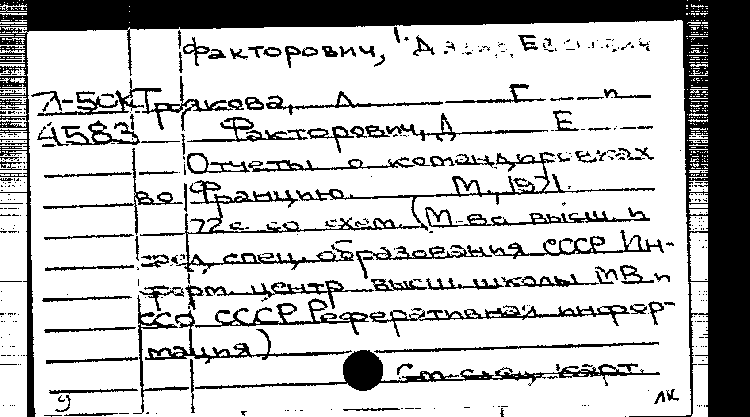 Факторович, 1. Давид Евсеевич
Л-50К Троякова, Л Г и
4583 Факторович, Д Е
Отчеты о командировках
во Францию. М., 1971.
72 с со схем. (М-во высш. и
сред. спец. образования СССР Ин-
форм. центр высш. школы МВ и
ССО СССР Реферативная инфор-
мация)
См след. карт.
9 ЛК